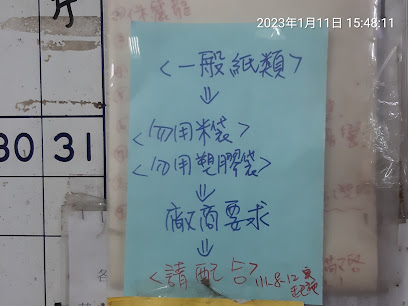 2023年1月11日 15:48:11
<一般紙類>
⇓
<勿用米袋>
<勿用塑膠袋>
⇓
廠商要求
⇓
<請配合>
111.8.12
30 31